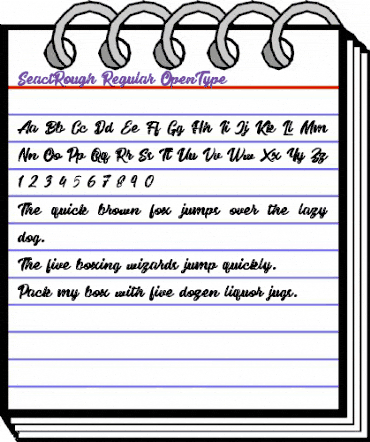 SeactRough Regular OpenType
Aa Bb Cc Dd Ee Ff Gg Hh Ii Jj Kk Ll Mm
Nn Oo Pp Qq Rr Ss Tt Uu Vv Ww Xx Yy Zz
1 2 3 4 5 6 7 8 9 0
The quick brown fox jumps over the lazy
dog.
The five boxing wizards jump quickly.
Pack my box with five dozen liquor jugs.